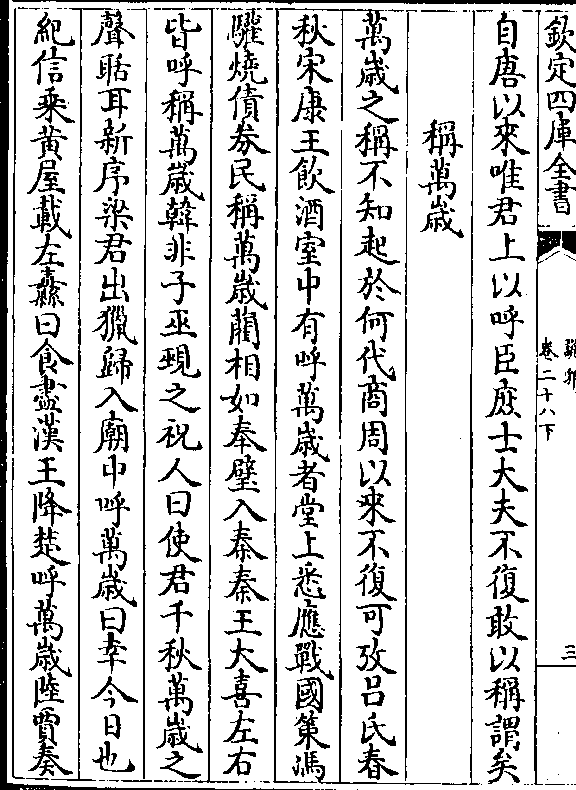 欽定四庫全書
卷二十八下
三
自唐以來唯君上以呼臣庶士大夫不復敢以稱謂矣
稱萬歲
萬歲之稱不知起於何代商周以來不復可攷吕氏春
秋宋康王飲酒室中有呼萬歲者堂上悉應戰國策馮
驩燒債券民稱萬歲藺相如奉璧入秦秦王大喜左右
皆呼稱萬歲韓非子巫覡之祝人曰使君千秋萬歲之
聲聒耳新序梁君出獵歸入廟中呼萬歲曰幸今日也
紀信乘黄屋載左纛曰食盡漢王降楚呼萬歲陸賈奏